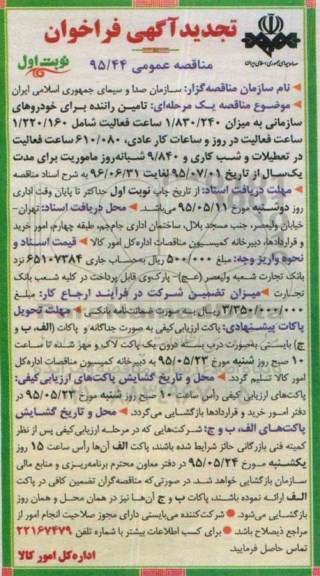 تجدیدآگهی فراخوان
صدا و سیمای جمهوری اسلامی ایران
مناقصه عمومی ۹۵/۴۴
نوبت اول
نام سازمان مناقصه‌گزار: سازمان صدا و سیمای جمهوری اسلامی ایران
موضوع مناقصه یک مرحله‌ای: تامین راننده برای خودروهای
سازمانی به میزان ۱/۸۳۰/۲۴۰ ساعت فعالیت شامل ۱/۲۲۰/۱۶۰
ساعت فعالیت در روز و ساعات کار عادی، ۶۱۰/۰۸۰ ساعت فعالیت
در تعطیلات و شب کاری و ۹/۸۴۰ شبانه‌روز ماموریت برای مدت
یک‌سال از تاریخ ۹۵/۰۷/۰۱ لغایت ۹۶/۰۶/۳۱ به شرح اسناد مناقصه
مهلت دریافت اسناد: از تاریخ چاپ نوبت اول حداکثر تا پایان وقت اداری
روز دوشنبه مورخ ۹۵/۰۵/۱۱ می‌باشد. محل دریافت اسناد: تهران-
خیابان ولیعصر، جنب مسجد بلال، ساختمان اداری جام‌جم، طبقه چهارم، امور خرید
و قراردادها، دبیرخانه کمیسیون مناقصات اداره‌کل امور کالا قیمت اسناد و
نحوه واریز وجه: مبلغ ۵۰۰/۰۰۰ ریال به‌حساب جاری ۶۵۱۰۷۳۸۴ نزد
بانک تجارت شعبه ولیعصر (عج)- پارک‌وی قابل پرداخت در کلیه شعب بانک
تجارت میزان تضمین شرکت در فرآیند ارجاع کار: مبلغ
۳/۳۵۰/۰۰۰/۰۰۰ ریال به صورت ضمانت‌نامه بانکی مهلت تحویل
پاکات پیشنهادی: پاکت ارزیابی کیفی به صورت جداگانه و پاکات (الف، ب و
ج) بایستی به‌صورت دربسته درون یک پاکت لاک و مهر شده تا ساعت
۱۰ صبح روز شنبه مورخ ۹۵/۰۵/۲۳ به دبیرخانه کمیسیون مناقصات اداره‌کل
امور کالا تسلیم گردد. محل و تاریخ گشایش پاکت‌های ارزیابی‌کیفی:
پاکت‌های ارزیابی کیفی رأس ساعت ۱۰ صبح روز شنبه مورخ ۹۵/۰۵/۲۳ در
دفتر امور خرید و قراردادها بازگشایی می‌گردد. محل و تاریخ گشایش
پاکت‌های الف، ب و ج: شرکت‌هایی که در مرحله ارزیابی‌کیفی پس از نظر
کمیته فنی بازرگانی حائز شرایط شده باشند، پاکت الف آن‌ها رأس ساعت ۱۵ روز
یکشنبه مورخ ۹۵/۰۵/۲۴ در دفتر معاون محترم برنامه‌ریزی و منابع مالی
سازمان بازگشایی خواهد شد. در صورتی که مناقصه‌گران تضمین کافی در پاکت
الف ارائه نموده باشند، پاکات ب و ج آن‌ها نیز در همان محل و همان روز
بازگشایی می‌شود. شرکت‌کننده می‌بایستی دارای مجوز صلاحیت انجام امور از
مراجع ذیصلاح باشد. برای کسب اطلاعات بیشتر با شماره تلفن ۲۲۱۶۷۴۷۹
تماس حاصل فرمایید.
اداره‌کل امور کالا